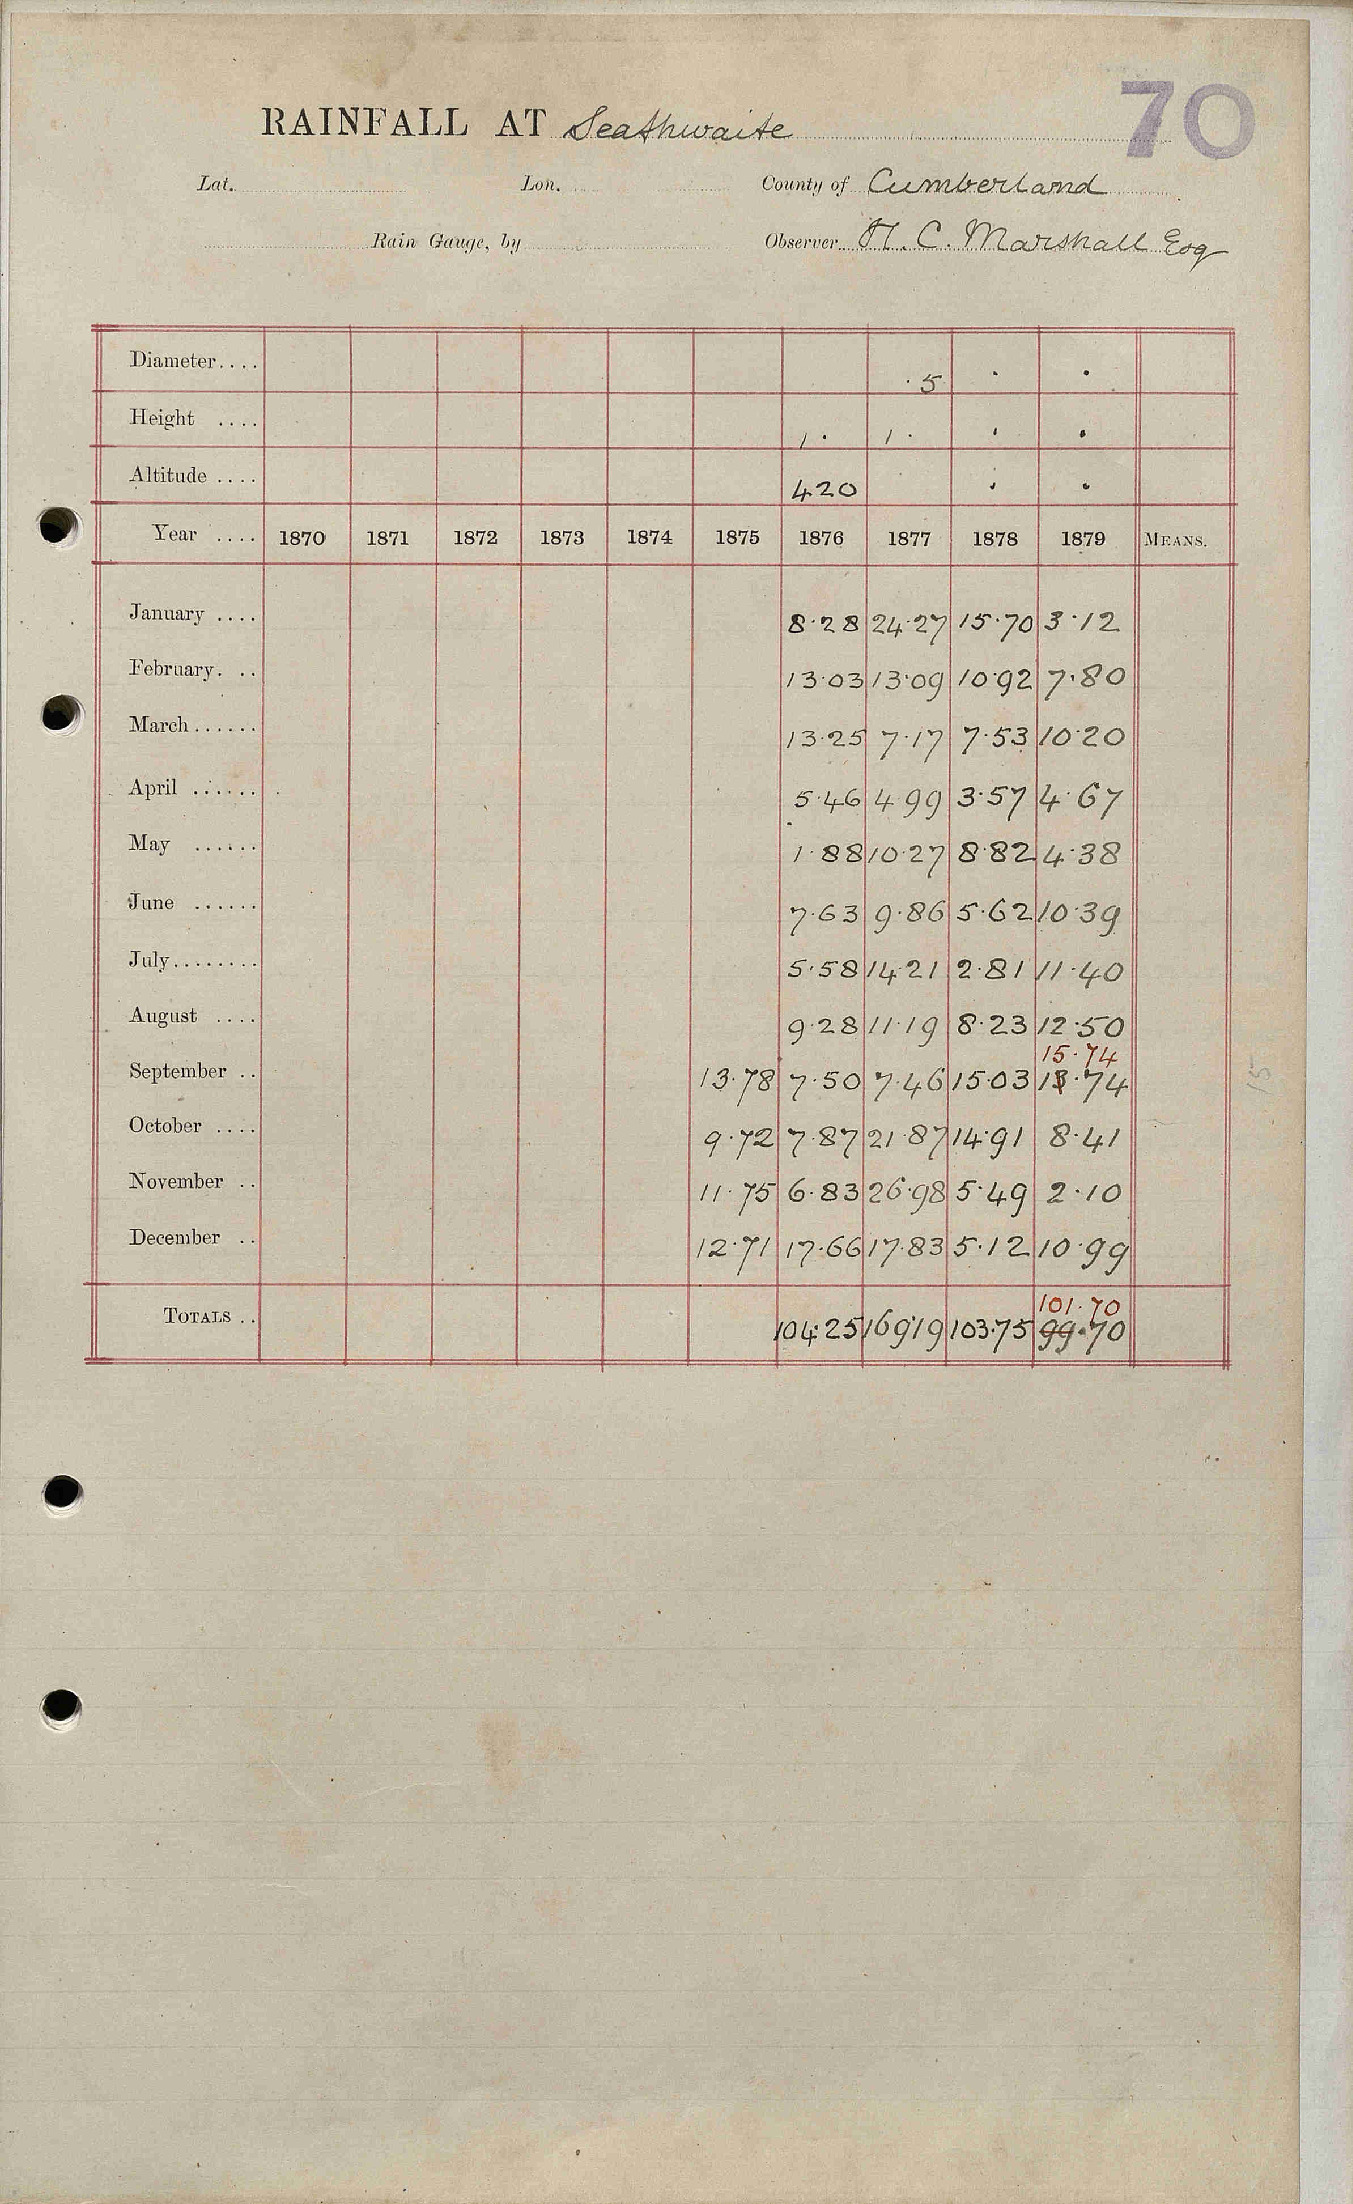 70
RAINFALL AT Seathwaite
Lat. Lon. County of Cumberland
Rain Gauge, by Observer H. C. Marshall Esq
Diameter.... · 5 · ·
Height .... 1 · 1 · · ·
Altitude .... 420 · ·
Year .... 1870 1871 1872 1873 1874 1875 1876 1877 1878 1879 MEANS.
January .... 8·28 24·27 15·70 3·12
February. .. 13·03 13·09 10·92 7·80
March...... 13·25 7·17 7·53 10·20
April ...... 5·46 4·99 3·57 4·67
May ...... 1·88 10·27 8·82 4·38
June ...... 7·63 9·86 5·62 10·39
July........ 5·58 14·21 2·81 11·40
August .... 9·28 11·19 8·23 12·50
15·74
September .. 13·78 7·50 7·46 15·03 13·74
15
October .... 9·72 7·87 21·87 14·91 8·41
November .. 11·75 6·83 26·98 5·49 2·10
December .. 12·71 17·66 17·83 5·12 10·99
101·70
TOTALS .. 104·25 169·19 103·75 99·70